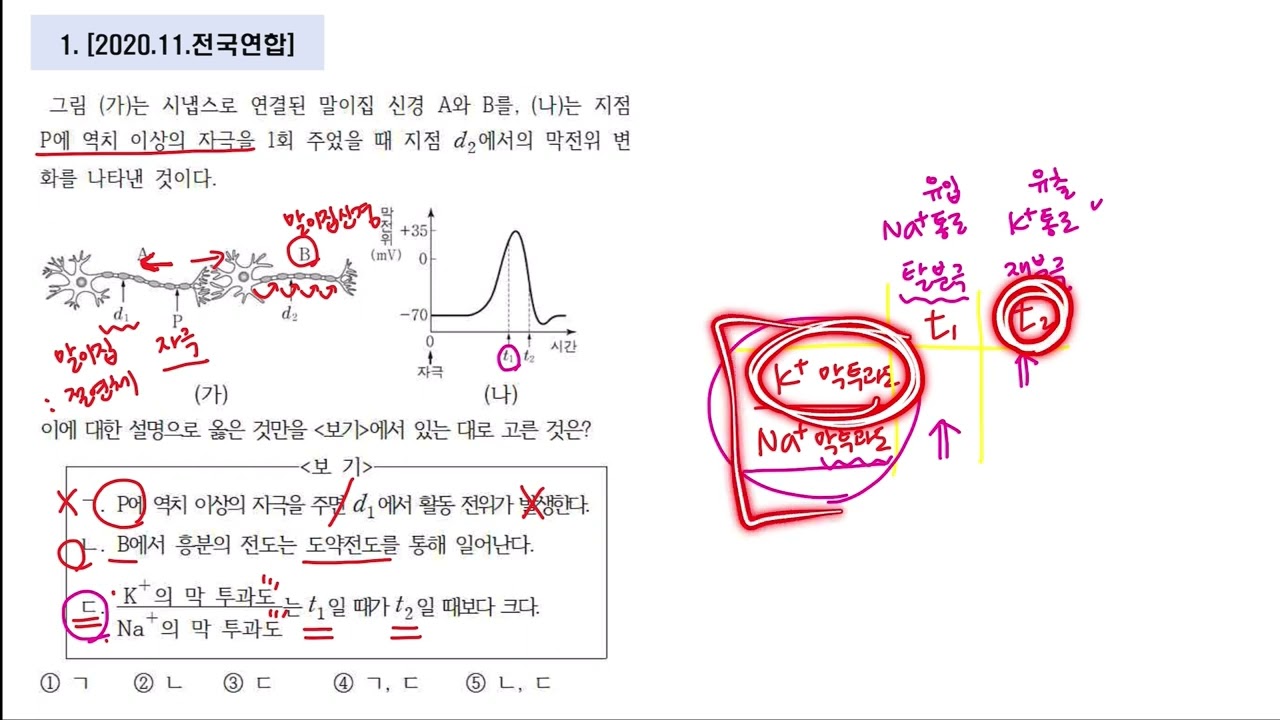 1. [2020.11.전국연합]
그림 (가)는 시냅스로 연결된 말이집 신경 A와 B를, (나)는 지점
P에 역치 이상의 자극을 1회 주었을 때 지점 d₂에서의 막전위 변
화를 나타낸 것이다.
말이집신경
A
B
d₁
P
d₂
말이집
자극
∴ 절연체
(가)
막전위
(mV)
+35
0
-70
0
t₁
t₂
시간
자극
(나)
유입
유출
Na⁺통로
K⁺통로
탈분극
재분극
t₁
t₂
K⁺ 막투과도
Na⁺ 막투과도
이에 대한 설명으로 옳은 것만을 <보기>에서 있는 대로 고른 것은?
<보 기>
ㄱ. P에 역치 이상의 자극을 주면 d₁에서 활동 전위가 발생한다.
ㄴ. B에서 흥분의 전도는 도약전도를 통해 일어난다.
ㄷ. K⁺의 막 투과도
Na⁺의 막 투과도
는 t₁일 때가 t₂일 때보다 크다.
① ㄱ ② ㄴ ③ ㄷ ④ ㄱ, ㄷ ⑤ ㄴ, ㄷ